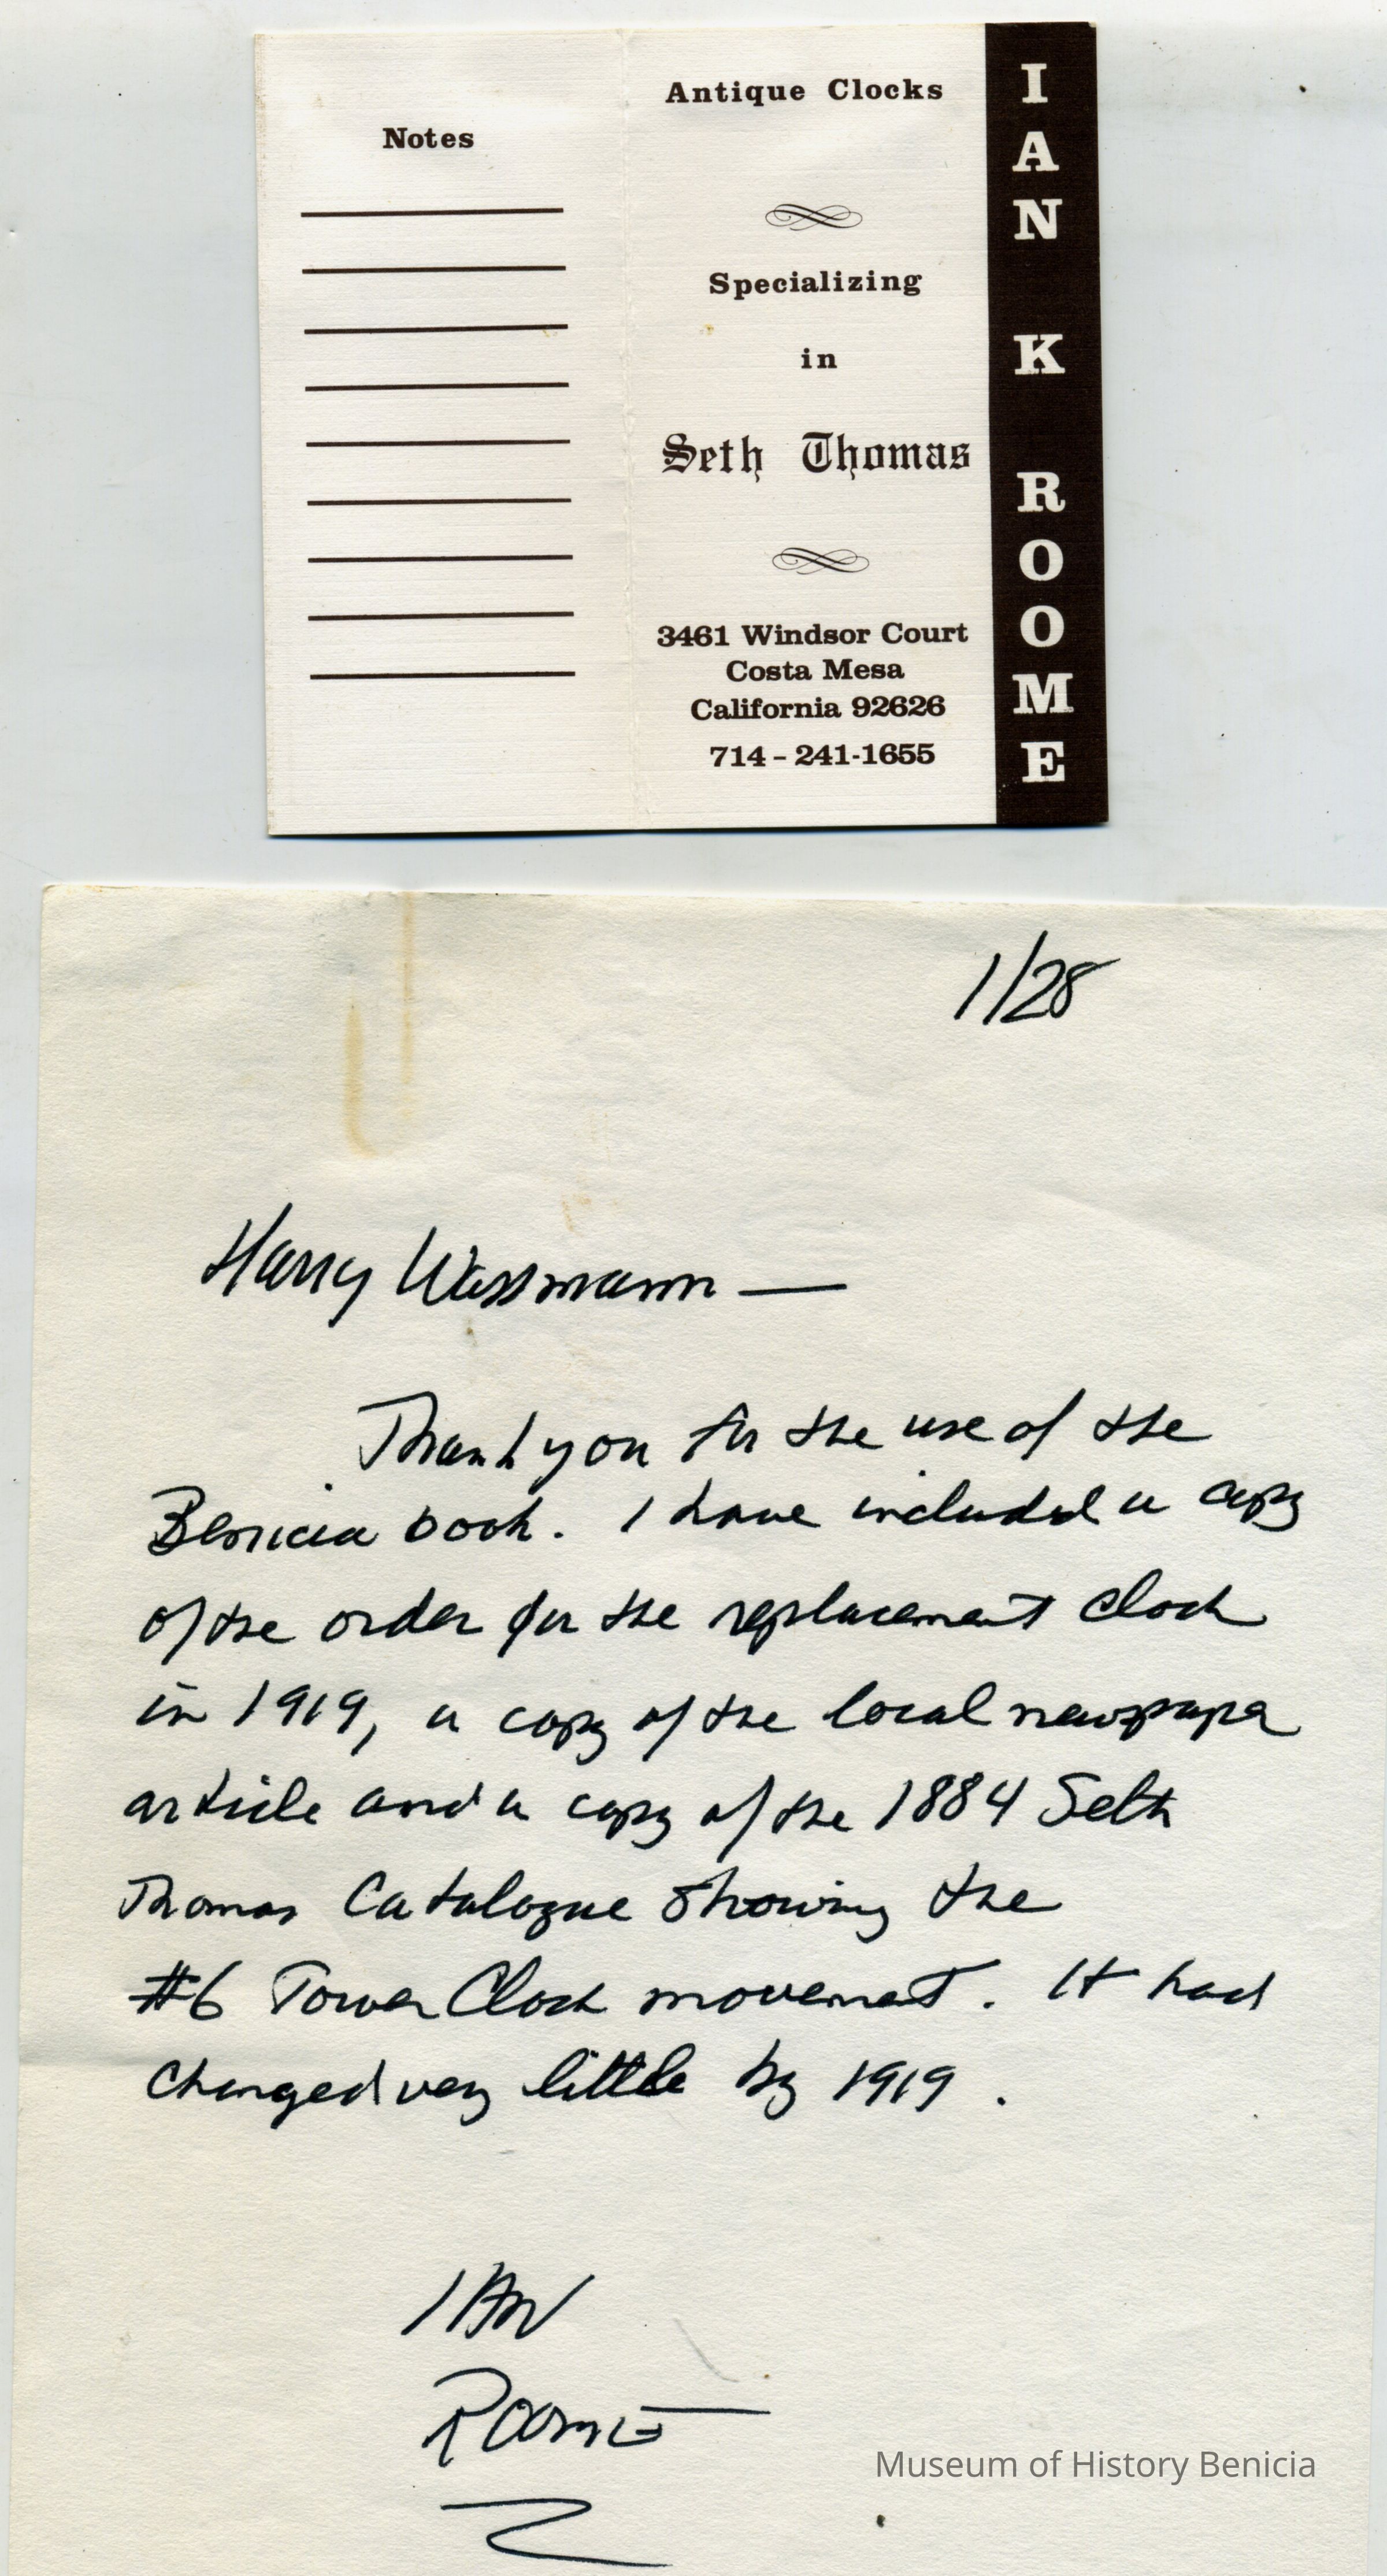 Notes
Antique Clocks
Specializing
in
Seth Thomas
3461 Windsor Court
Costa Mesa
California 92626
714 - 241-1655
IAN K ROOME
1/28
Harry Wassmann —
Thank you for the use of the
Benicia book. I have included a copy
of the order for the replacement clock
in 1919, a copy of the local newspaper
article and a copy of the 1884 Seth
Thomas Catalogue showing the
#6 Tower Clock movement. It had
changed very little by 1919.
IAN
ROOME
Museum of History Benicia